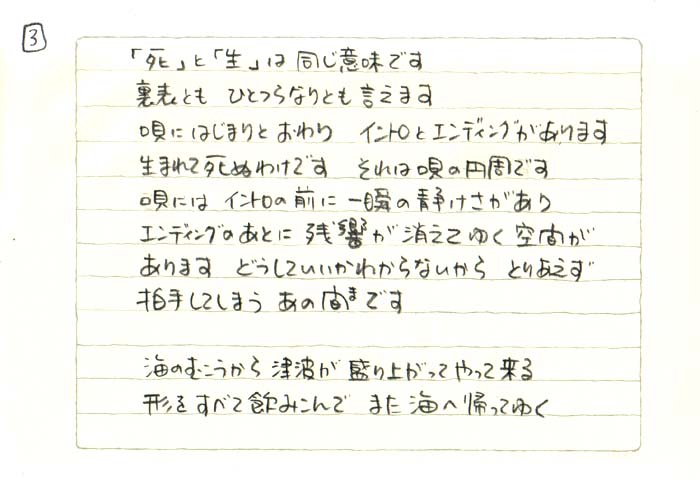 3
「死」と「生」は 同じ意味です
裏表とも ひとつらなりとも 言えます
唄にはじまりと おわり イントロとエンディングがあります
生まれて死ぬわけです それは唄の円周です
唄には イントロの前に 一瞬の静けさがあり
エンディングのあとに 残響が消えてゆく空間が
あります どうしていいかわからないから とりあえず
拍手してしまう あの間まです
海のむこうから 津波が 盛り上がってやって来る
形を すべて飲みこんで また 海へ帰ってゆく